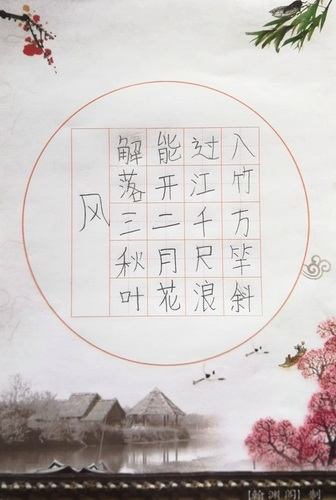 风
解落三秋叶
能开二月花
过江千尺浪
入竹万竿斜
【翰渊阁】